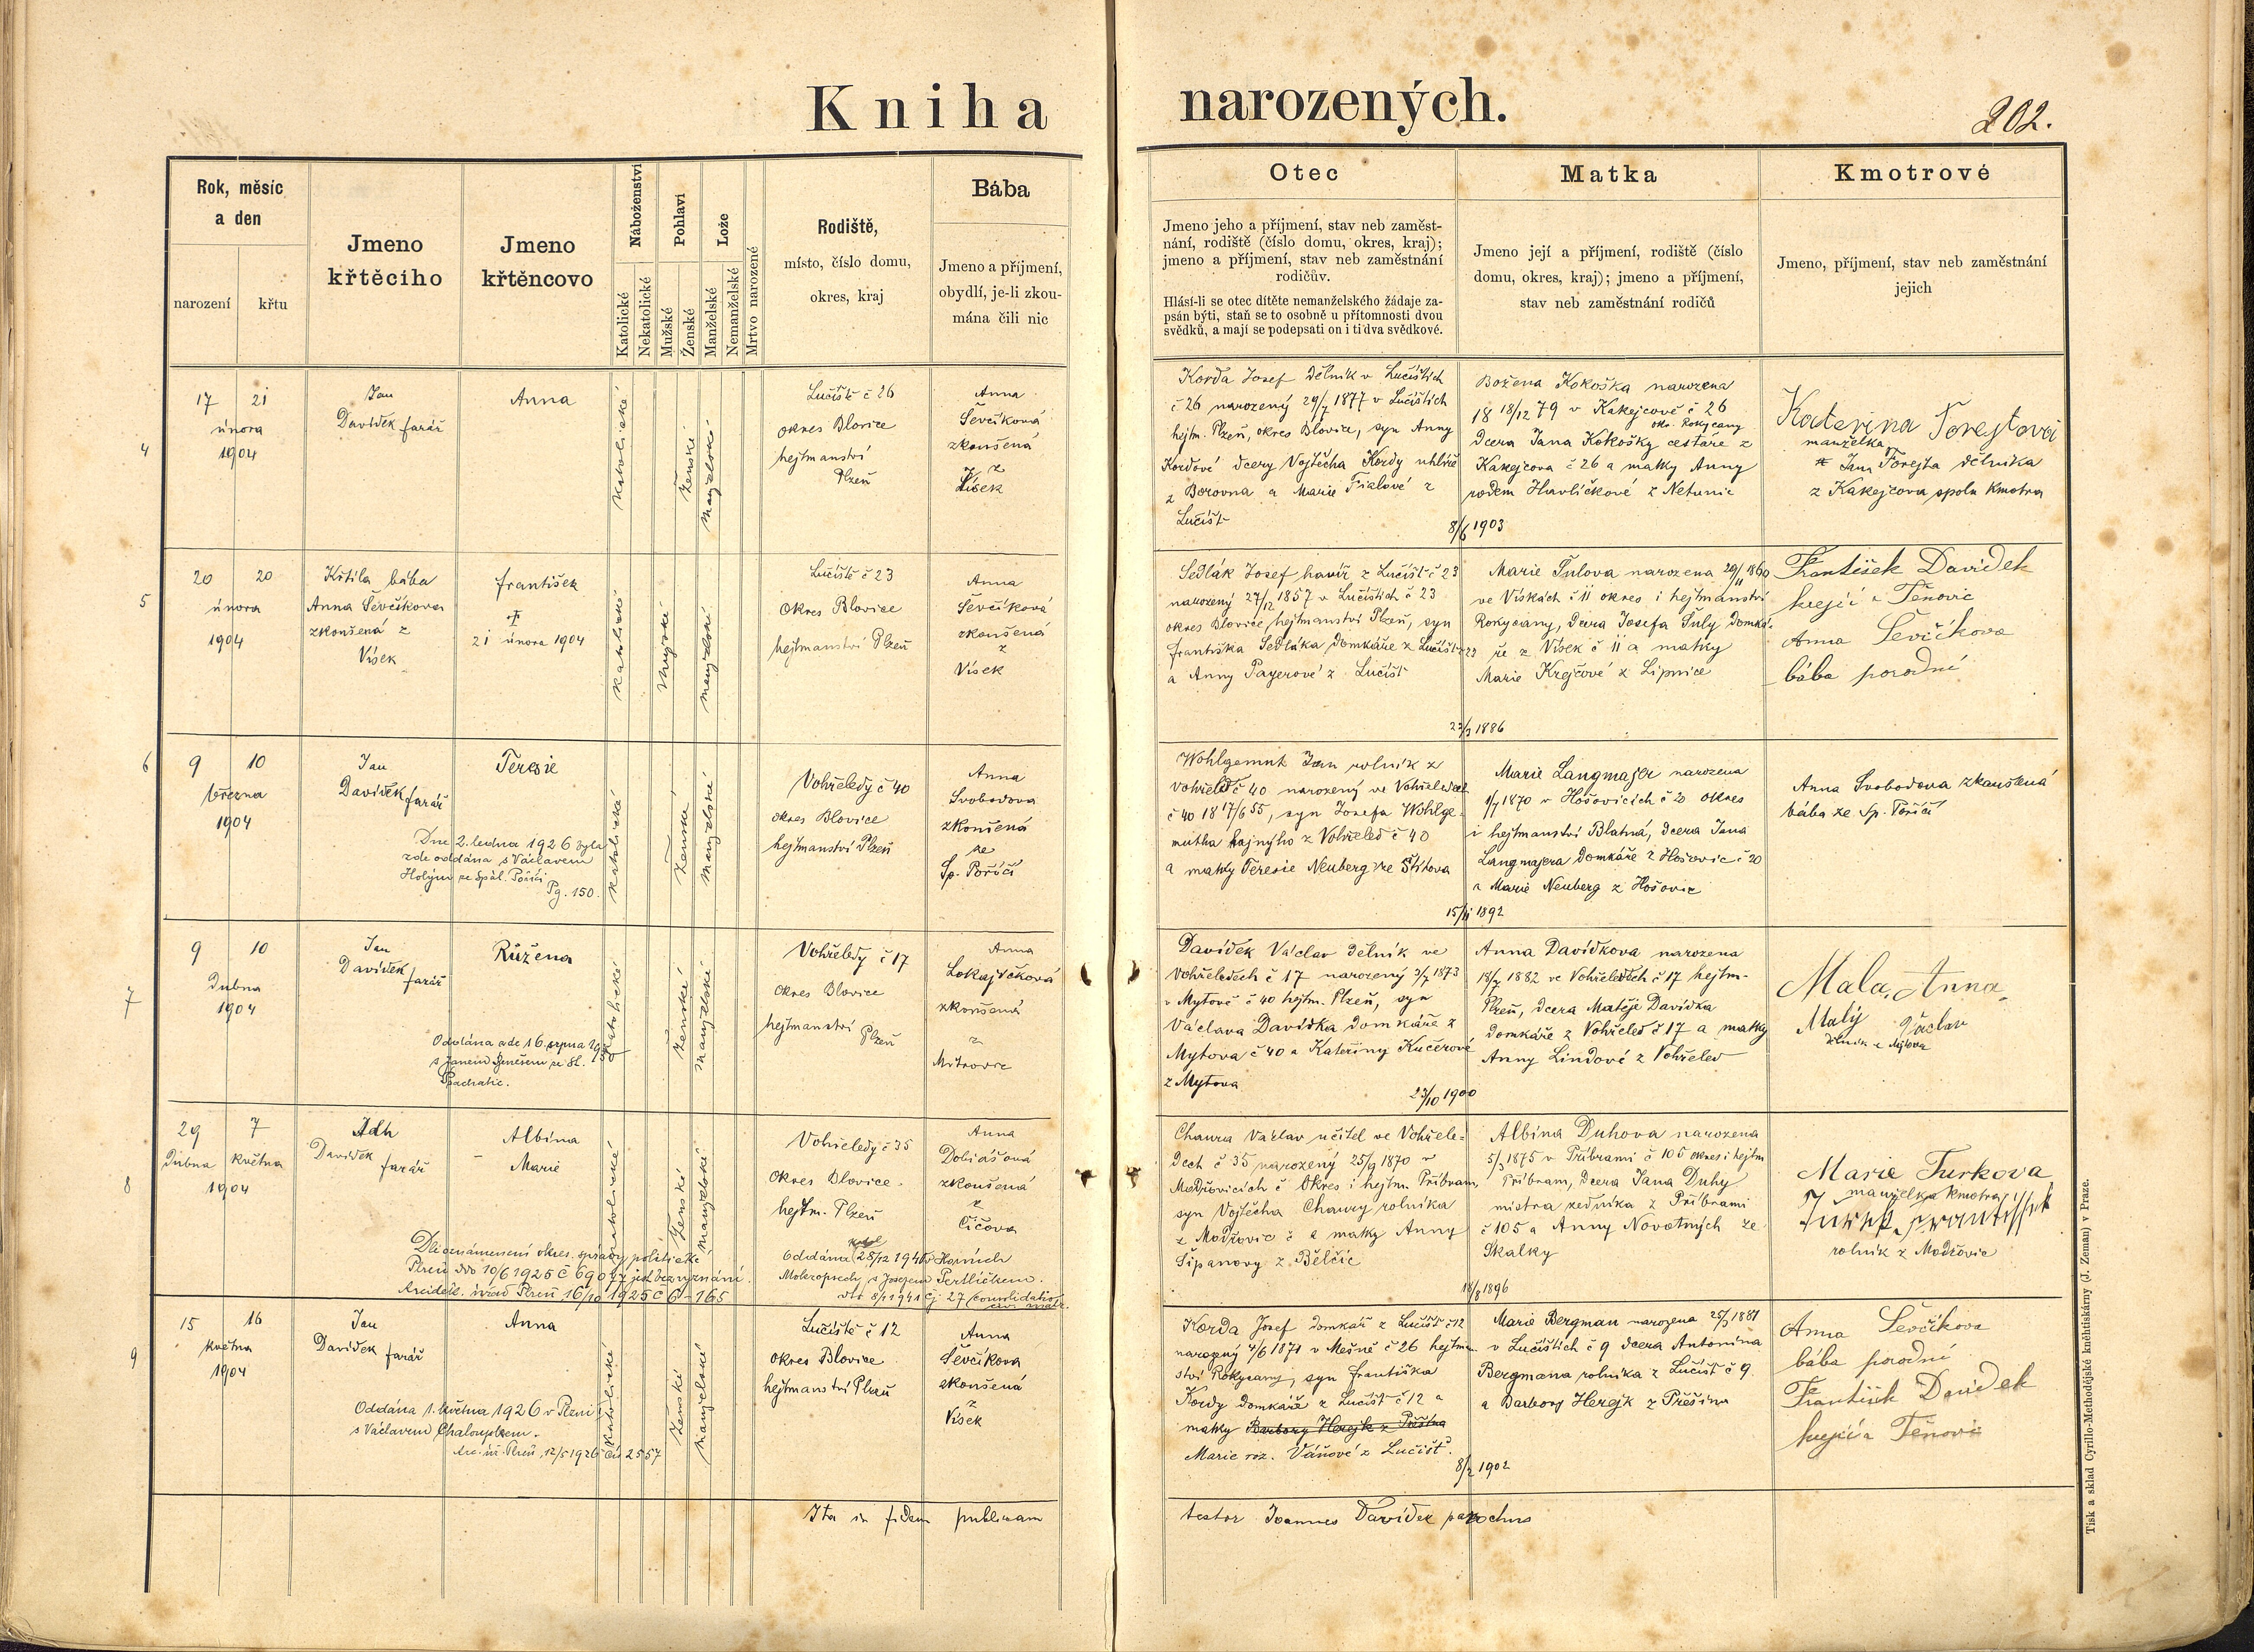 Kniha narozených.
202.
Rok, měsíc
a den
narození
křtu
Jmeno
křtěcího
Jmeno
křtěncovo
Náboženství
Katolické
Nekatolické
Pohlaví
Mužské
Ženské
Lože
Manželské
Nemanželské
Mrtvo narozené
Rodiště,
místo, číslo domu,
okres, kraj
Bába
Jmeno a příjmení,
obydlí, je-li zkou-
mána čili nic
Otec
Jmeno jeho a příjmení, stav neb zaměst-
nání, rodiště (číslo domu, okres, kraj);
jmeno a příjmení, stav neb zaměstnání
rodičův.
Hlásí-li se otec dítěte nemanželského žádaje za-
psán býti, staň se to osobně u přítomnosti dvou
svědků, a mají se podepsati on i ti dva svědkové.
Matka
Jmeno její a příjmení, rodiště (číslo
domu, okres, kraj); jmeno a příjmení,
stav neb zaměstnání rodičů
Kmotrové
Jmeno, příjmení, stav neb zaměstnání
jejich
4
17 21
února
1904
Jan
Davídek farář
Anna
katolické
ženské
manželské
Lučiště č 26
okres Blovice
hejtmanství
Plzeň
Anna
Ševčíková
zkoušená
z
Vísek
Korda Josef dělník v Lučištích
č 26 narozený 29/7 1877 v Lučištích
hejtm. Plzeň, okres Blovice, syn Anny
Kordové dcery Vojtěcha Kordy uhlíře
z Borovna a Marie Fialové z
Lučišť
8/6 1903
Božena Kokoška narozena
18 18/12 79 v Kakejcově č 26
okr. Rokycany
dcera Jana Kokošky cestáře z
Kakejcova č 26 a matky Anny
rodem Havlíčkové z Netunic
Kateřina Forejtová
manželka
Jana Forejta dělníka
z Kakejcova spolu kmotra
5
20 20
února
1904
Křtila bába
Anna Ševčíkova
zkoušená z
Vísek
František
21 února 1904
katolické
mužské
manželské
Lučiště č 23
Okres Blovice
hejtmanství Plzeň
Anna
Ševčíková
zkoušená
z
Vísek
Sedlák Josef havíř z Lučišť č 23
narozený 27/12 1857 v Lučištích č 23
okres Blovice, hejtmanství Plzeň, syn
Františka Sedláka domkáře z Lučišť 23
a Anny Payerové z Lučišť
1886
Marie Šulova narozena 29/11 1860
ve Vískách č 11 okres i hejtmanství
Rokycany, dcera Josefa Šuly domká-
ře z Vísek č 11 a matky
Marie Krejčové z Lipnice
František Davídek
krejčí z Těnovic
Anna Ševčíkova
bába porodní
6
9 10
března
1904
Jan
Davídek farář
Teresie
Dne 2. ledna 1926 byla
zde oddána s Václavem
Holým ze Spál. Poříčí
Pg. 150.
katolické
ženské
manželské
Vohřeledy č 40
okres Blovice
hejtmanství Plzeň
Anna
Svobodova
zkoušená
ze
Sp. Poříčí
Wohlgemut Jan rolník z
Vohřeled č 40 narozený ve Vohřeledech
č 40 18 17/6 55, syn Josefa Wohlge-
mutha hajného z Vohřeled č 40
a matky Teresie Neuberg ze Štítova
15/11 1892
Marie Langmajer narozena
1/7 1870 v Hošovicích č 20 okres
i hejtmanství Blatná, dcera Jana
Langmajera domkáře z Hošovic č 20
a Marie Neuberg z Hošovic
Anna Svobodova zkoušená
bába ze Sp. Poříčí
7
9 10
Dubna
1904
Jan
Davídek
farář
Růžena
Oddána zde 16. srpna
s Janem Benešem ze St.
katolické
ženské
manželské
Vohřeledy č 17
okres Blovice
hejtmanství
Plzeň
Anna
Lokajíčková
zkoušená
z
Mítrovic
Davídek Václav dělník ve
Vohřeledech č 17 narozený 3/7 1873
v Mytově č 40 hejtm. Plzeň, syn
Václava Davídka domkáře z
Mytova č 40 a Kateřiny Kučerové
z Mytova
23/10 1900
Anna Davídkova narozena
18/7 1882 ve Vohřeledech č 17 hejtm-
Plzeň, dcera Matěje Davídka
domkáře z Vohřeled č 17 a matky
Anny Lindové z Vohřeled
Mala, Anna,
Malý Václav
dělník z Mýtova
8
29 7
Dubna května
1904
Jan
Davídek
farář
Albína
Marie
Dle oznámení okres. správy politické
Plzeň dto 10/6 1925 č 69044 jest bez vyznání.
Arcidek. úřad Plzeň 16/10 1925 č 6-165
katolické
ženské
manželské
Vohřeledy č 35
Okres Blovice.
hejtm. Plzeň
Oddána 28/12 1940 v Horních
Mokropsech s Josefem Pertlíčkem.
dto 8/1 1941 čj. 27
Anna
Dobiášová
zkoušená
z
Číčova
Chaura Václav učitel ve Vohřele-
dech č 35 narozený 25/9 1870 v
Modřovicích č Okres i hejtm. Příbram,
syn Vojtěcha Chaury rolníka
z Modřovic č a matky Anny
Šípanovy z Bělčic
18/8 1896
Albína Duhova narozena
5/3 1875 v Příbrami č 105 okres i hejtm
Příbram, dcera Jana Duhy
mistra zedníka z Příbrami
č 105 a Anny Novotných ze
Skalky
Marie Turkova
manželka kmotra
Turek František
rolník z Modřovic
9
15 16
května
1904
Jan
Davídek farář
Anna
Oddána 1. května 1926 v Plzni
s Václavem Chaloupkem.
Arc. úř. Plzeň, 12/5 1926 čís 2557
katolické
ženské
manželské
Lučiště č 12
okres Blovice
hejtmanství Plzeň
Anna
Ševčíkova
zkoušená
z
Vísek
Korda Josef domkář z Lučišť č 12
narozený 4/6 1871 v Mešně č 26 hejtman
ství Rokycany, syn Františka
Kordy domkáře z Lučišť č 12 a
matky Barbory Herejk z Přešína
Marie roz. Váňové z Lučišť.
8/2 1902
Marie Bergman narozena 25/3 1881
v Lučištích č 9 dcera Antonína
Bergmana rolníka z Lučišť č 9
a Barbory Herejk z Přešína
Anna Ševčíkova
bába porodní
František Davídek
krejčí z Těnovic
Ita in fidem publicam testor Joannes Davídek parochus
Tisk a sklad Cyrillo-Methodějské knihtiskárny (J. Zeman) v Praze.